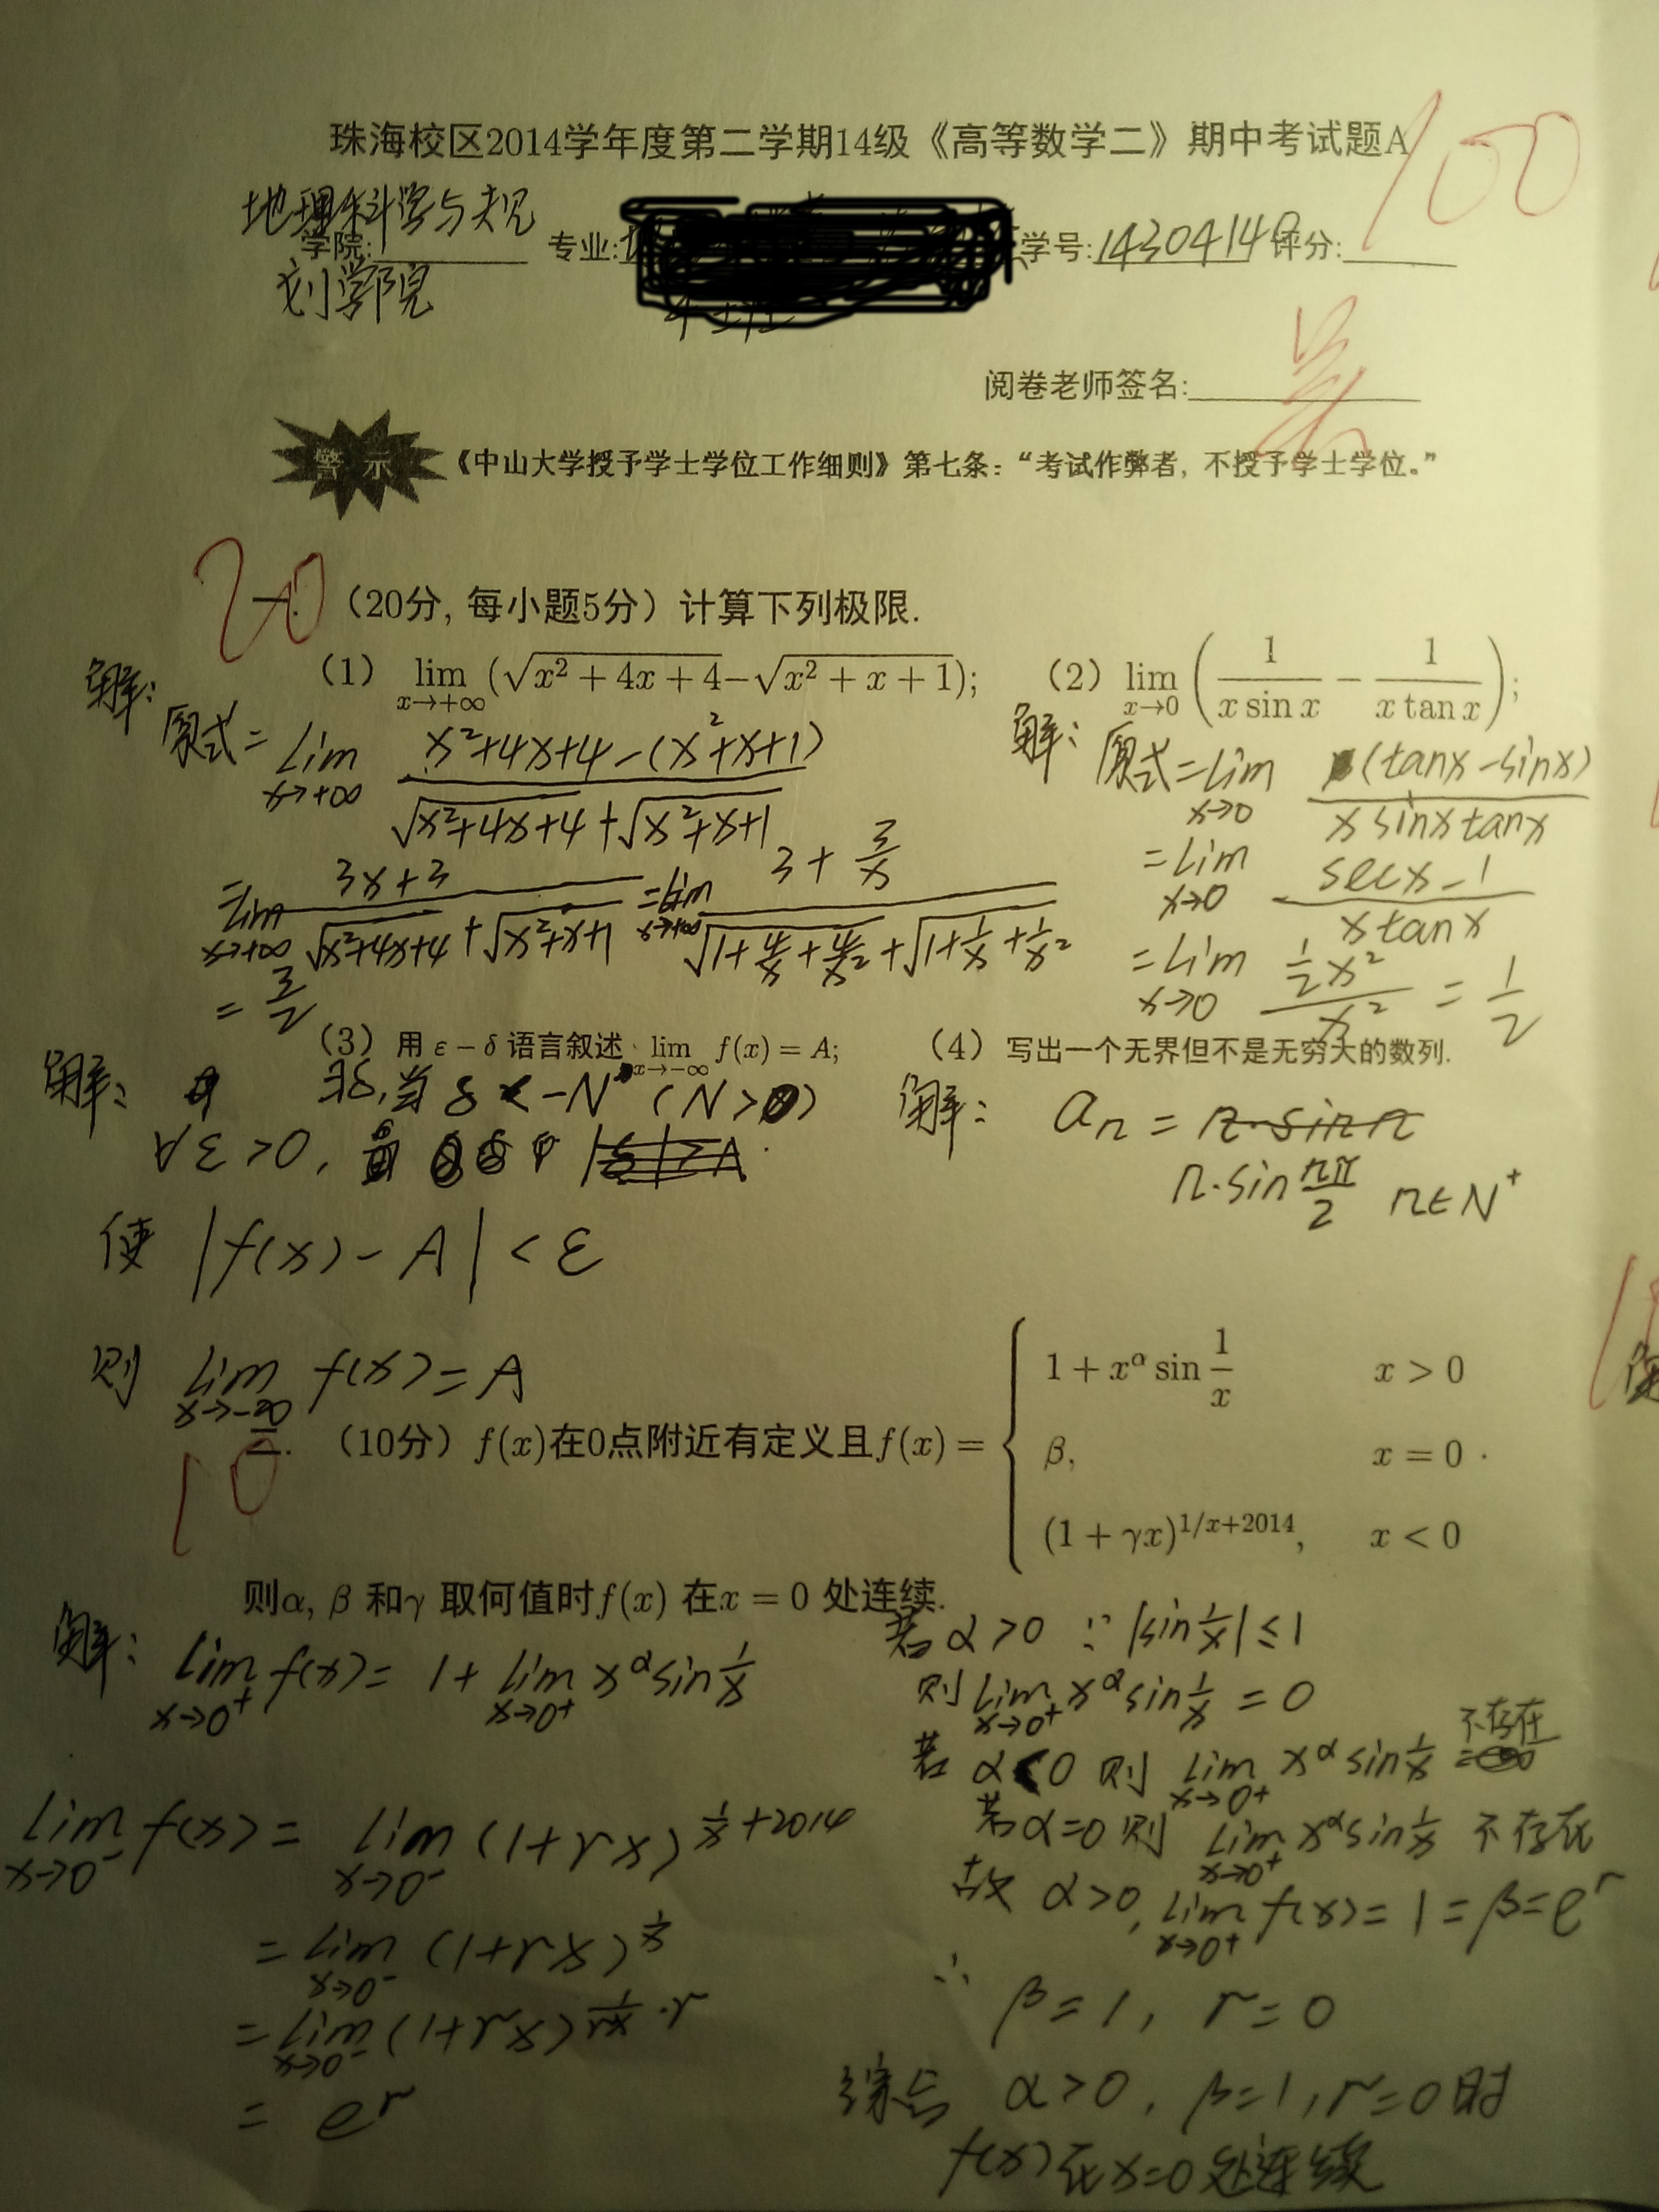 珠海校区2014学年度第二学期14级《高等数学二》期中考试题A
100
地理科学与规
学院: 专业: 学号:1430414 评分:
划学院
阅卷老师签名:
警示 《中山大学授予学士学位工作细则》第七条：“考试作弊者，不授予学士学位。”
20
一. （20分, 每小题5分）计算下列极限.
（1） lim x→+∞ (√(x²+4x+4)−√(x²+x+1));
（2） lim x→0 (1/(x sin x) − 1/(x tan x));
解:
原式= lim x→+∞ (x²+4x+4-(x²+x+1))/(√(x²+4x+4)+√(x²+x+1))
= lim x→+∞ (3x+3)/(√(x²+4x+4)+√(x²+x+1)) = lim x→+∞ (3+3/x)/(√(1+4/x+4/x²)+√(1+1/x+1/x²))
= 3/2
解: 原式= lim x→0 (tanx-sinx)/(x sinx tanx)
= lim x→0 (secx-1)/(x tanx)
= lim x→0 (½x²)/x² = 1/2
（3）用 ε−δ 语言叙述 lim x→−∞ f(x) = A;
（4）写出一个无界但不是无穷大的数列.
解: ∃δ,当 δ<-N (N>0)
∀ε>0,
使 |f(x)-A|<ε
则 lim x→-∞ f(x)=A
解: aₙ = n·sin n
n·sin nπ/2 n∈N⁺
10
二. （10分）f(x)在0点附近有定义且f(x) = { 1 + x^α sin 1/x x > 0
β, x = 0 .
(1 + γx)^(1/x+2014), x < 0
则α, β 和γ 取何值时f(x) 在x = 0 处连续.
解: lim x→0⁺ f(x)= 1+ lim x→0⁺ x^α sin 1/x
lim x→0⁻ f(x)= lim x→0⁻ (1+rx)^(1/x+2014)
= lim x→0⁻ (1+rx)^(1/x)
= lim x→0⁻ (1+rx)^(1/rx·r)
= e^r
若α>0 ∵ |sin 1/x|≤1
则 lim x→0⁺ x^α sin 1/x = 0
若 α<0 则 lim x→0⁺ x^α sin 1/x 不存在
若α=0则 lim x→0⁺ x^α sin 1/x 不存在
故 α>0, lim x→0⁺ f(x)= 1=β=e^r
∴ β=1, r=0
综合 α>0, β=1, r=0时
f(x)在x=0处连续